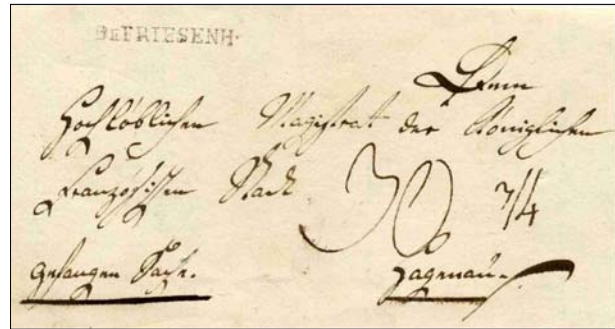 DeFRIESENH.
Dem
Hochlöblichen Magistrat der Königlichen
Französischen Stadt 30 3/4
Gefangen Sache. Hagenau.